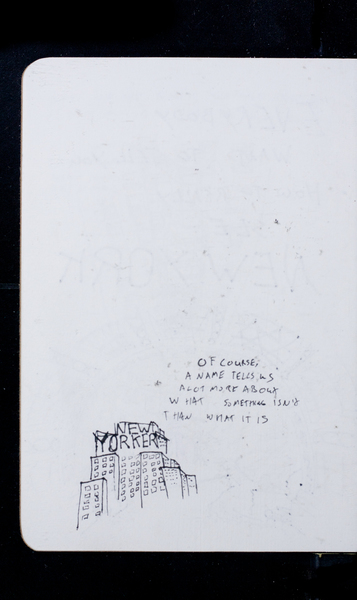 OF COURSE,
A NAME TELLS US
A LOT MORE ABOUT
WHAT SOMETHING ISN'T
THAN WHAT IT IS
NEW
YORKER
NEW YORK